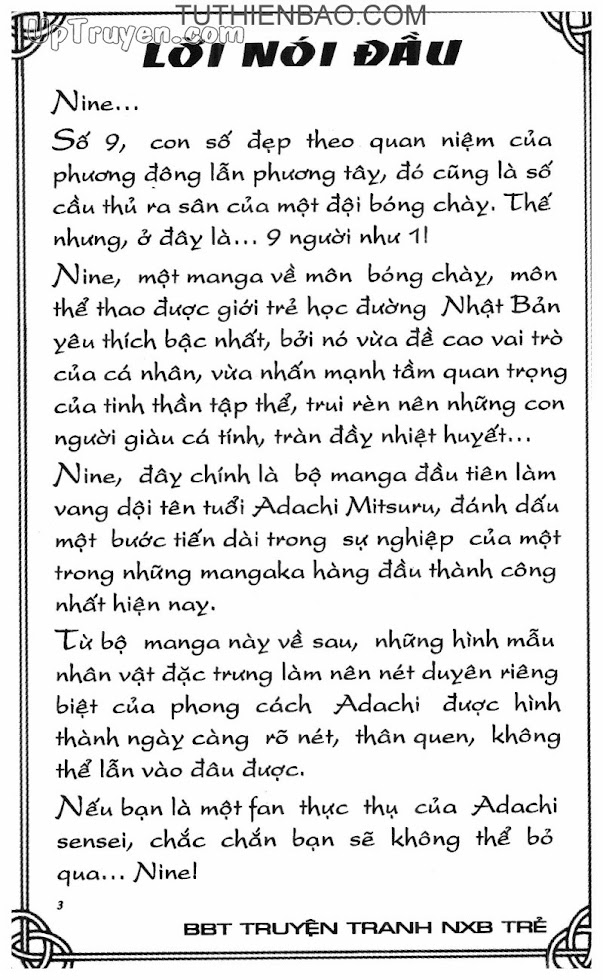 TUTHIENBAO.COM
UpTruyen.com
LỜI NÓI ĐẦU
Nine...
Số 9, con số đẹp theo quan niệm của
phương đông lẫn phương tây, đó cũng là số
cầu thủ ra sân của một đội bóng chày. Thế
nhưng, ở đây là... 9 người như 1!
Nine, một manga về môn bóng chày, môn
thể thao được giới trẻ học đường Nhật Bản
yêu thích bậc nhất, bởi nó vừa đề cao vai trò
của cá nhân, vừa nhấn mạnh tầm quan trọng
của tinh thần tập thể, trui rèn nên những con
người giàu cá tính, tràn đầy nhiệt huyết...
Nine, đây chính là bộ manga đầu tiên làm
vang dội tên tuổi Adachi Mitsuru, đánh dấu
một bước tiến dài trong sự nghiệp của một
trong những mangaka hàng đầu thành công
nhất hiện nay.
Từ bộ manga này về sau, những hình mẫu
nhân vật đặc trưng làm nên nét duyên riêng
biệt của phong cách Adachi được hình
thành ngày càng rõ nét, thân quen, không
thể lẫn vào đâu được.
Nếu bạn là một fan thực thụ của Adachi
sensei, chắc chắn bạn sẽ không thể bỏ
qua... Nine!
3
BBT TRUYỆN TRANH NXB TRẺ